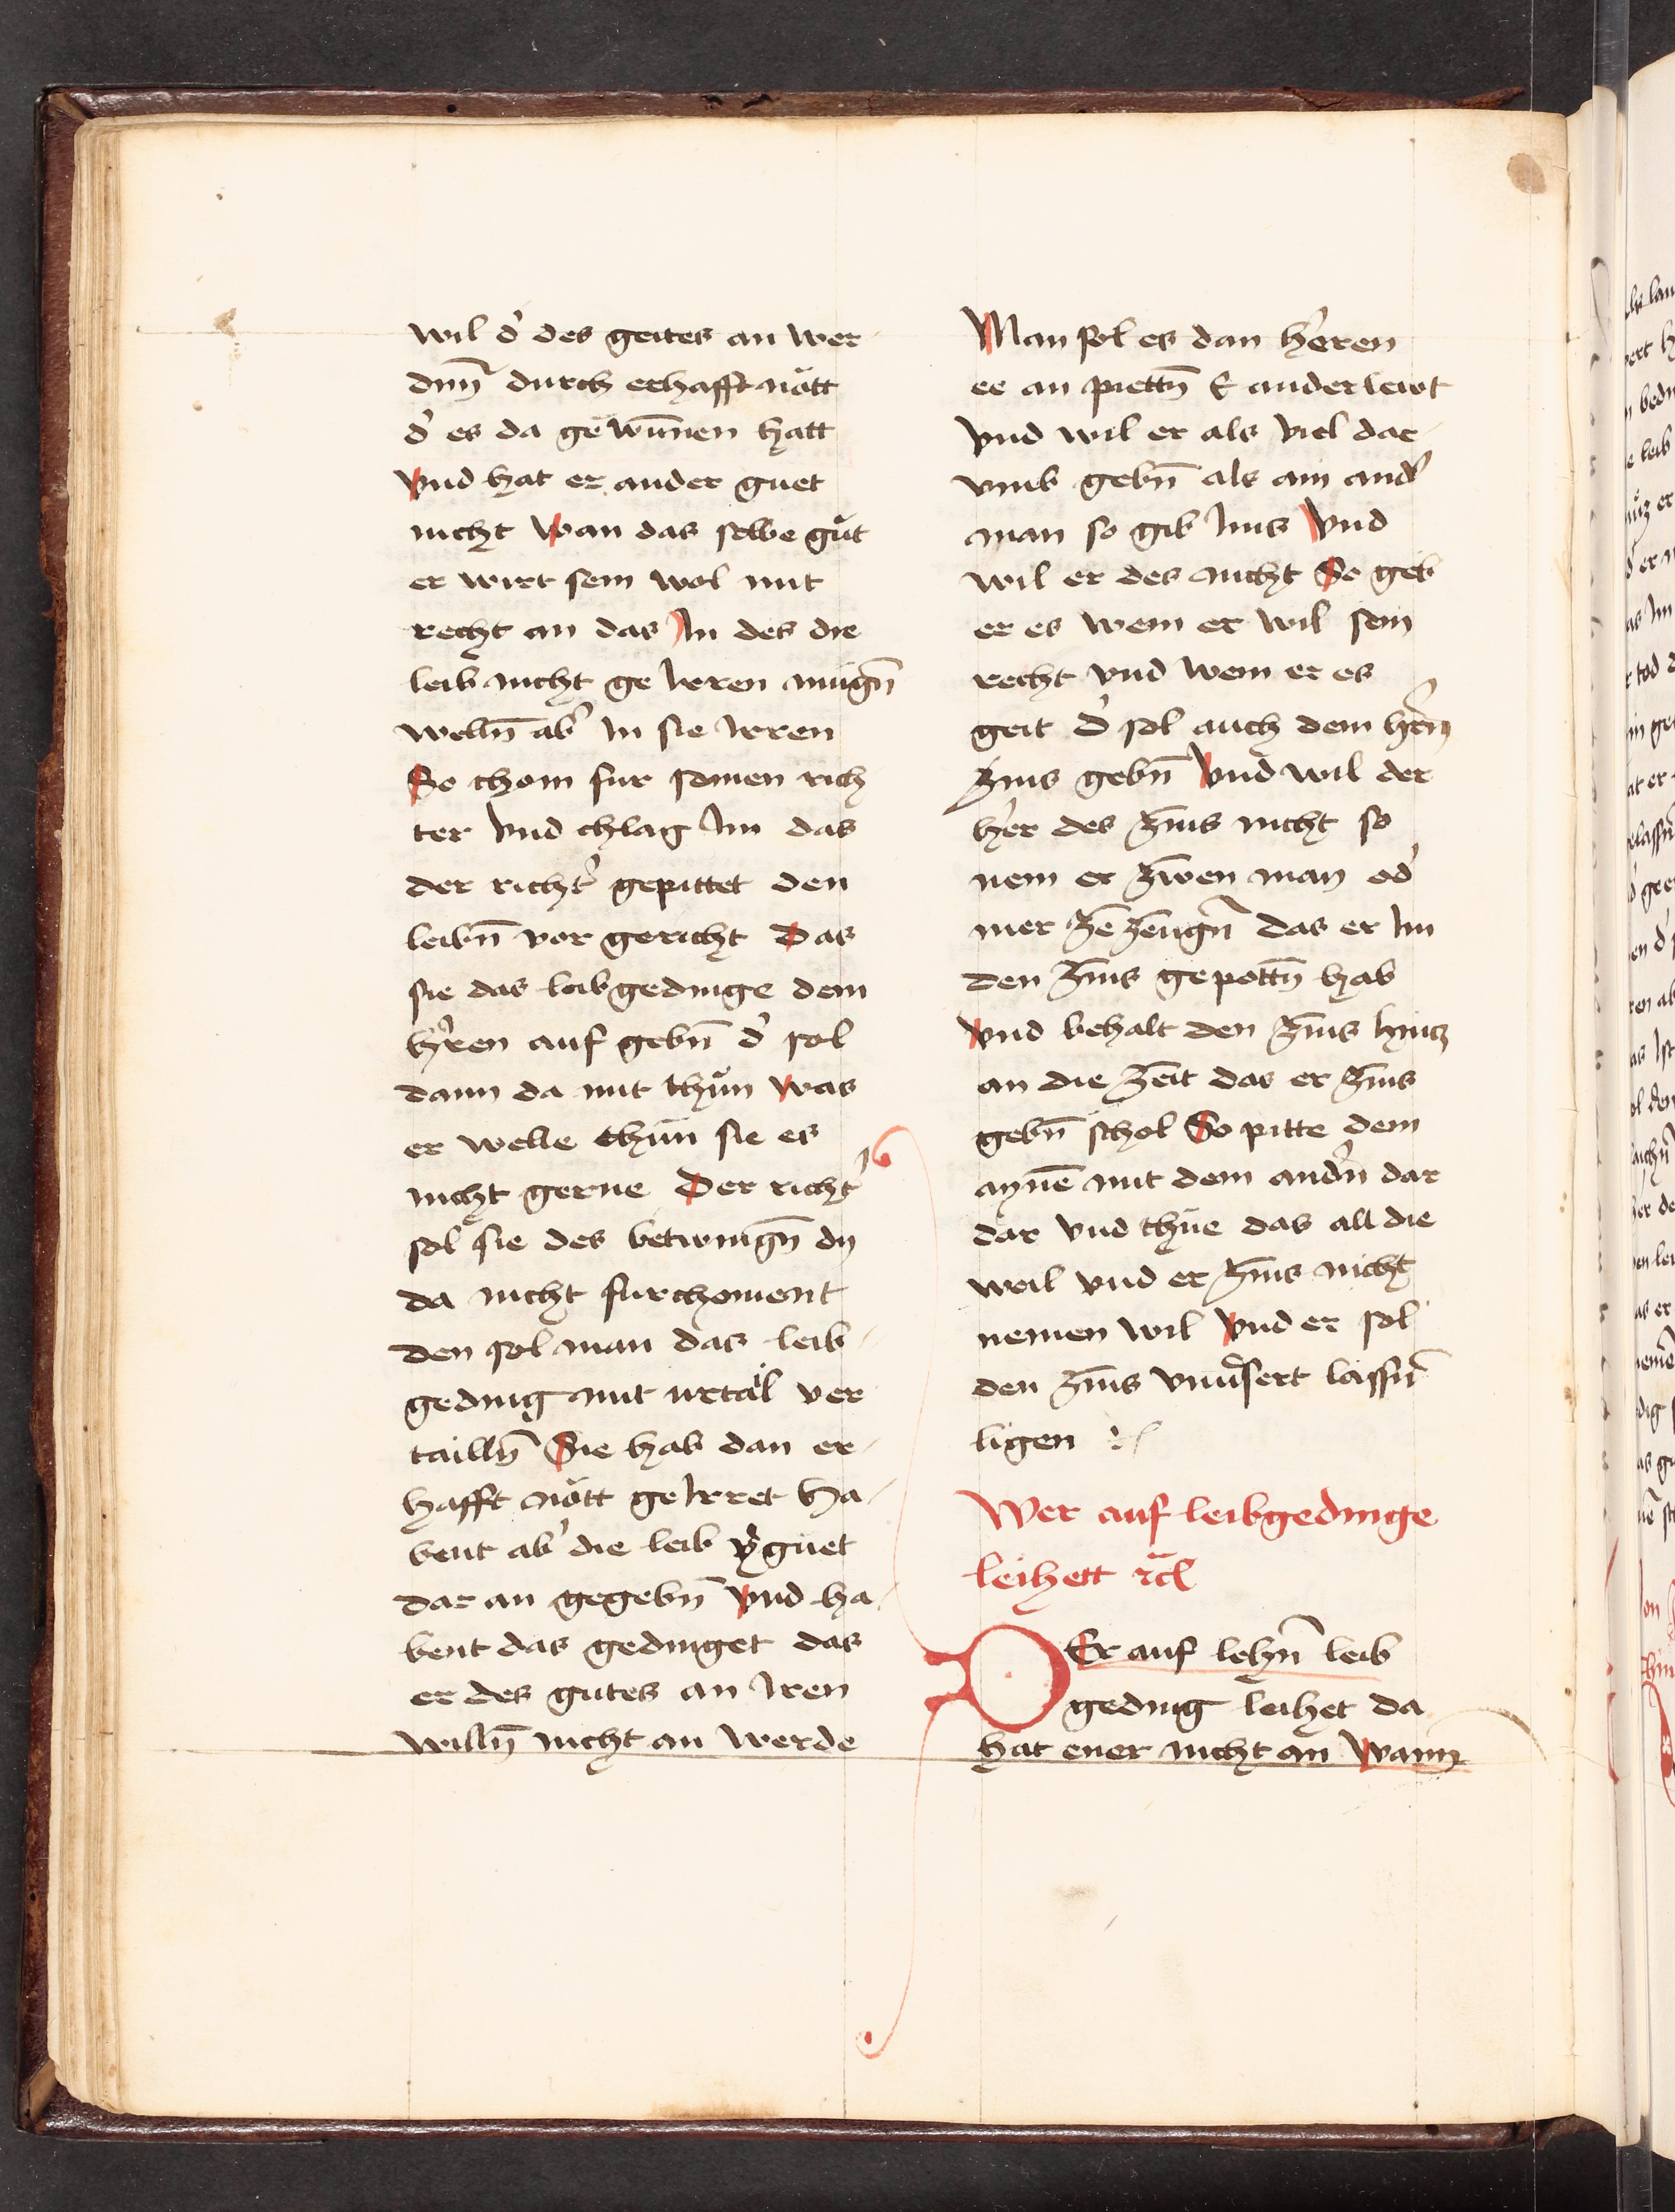 wil d' des geites an wer
dnn̄ durch erhafft nött
d' es da gewūnnen hatt
Vnd hat er ander guet
nicht Wan das selbe gůt
er wirt sein wol mit
recht an das In des die
leib nicht ge Irren mügn̄
welln̄ ab' In sie Irren
So chom fur seinen rich
ter Vnd chlag Im das
der richt' gepittet den
leibn̄ vor gericht Das
sie das leibgedinge dem
h'ren auf gebn̄ d' sol
dann da mit thůn Was
er welle thün sie es
nicht gerne Der richt'
sol sie des betwingn̄ dy
da nicht furchoment
den sol man das leib
geding mit urtail ver
tailln̄ Sie hab dan er
hafft nött geIrret ha
bent ab' die leib v'guet
dar an gegebn̄ Vnd ha
bent das gedinget das
er des gutes an Iren
willn̄ nicht an werde
Man sol es dan h'eren
ee an piettn̄ E ander lewt
Vnd wil er als viel dar
vmb gebn̄ als ain and'
man so gib Ims Vnd
wil er des nicht So geb
er es wem er wil sein
recht vnd wem er es
geit d' sol auch dem h'rn
zins gebn̄ Vnd wil der
h'er des zins nicht so
nem er zwen man od'
mer ze zeugn̄ das er Im
den zins gepottn̄ hab
Vnd behalt den zins hintz
an die zeit das er zins
gebn̄ schol So pitte dem
aynē mit dem and'n dar
dar vnd thüe das all die
weil vnd er zins nicht
nemen wil Vnd er sol
den zins vnu'sert lassn̄
ligen
Wer auf leibgedinge
leihett rc̄
DEr auf lehn̄ leib
geding leihet da
hat ener nicht an Wann